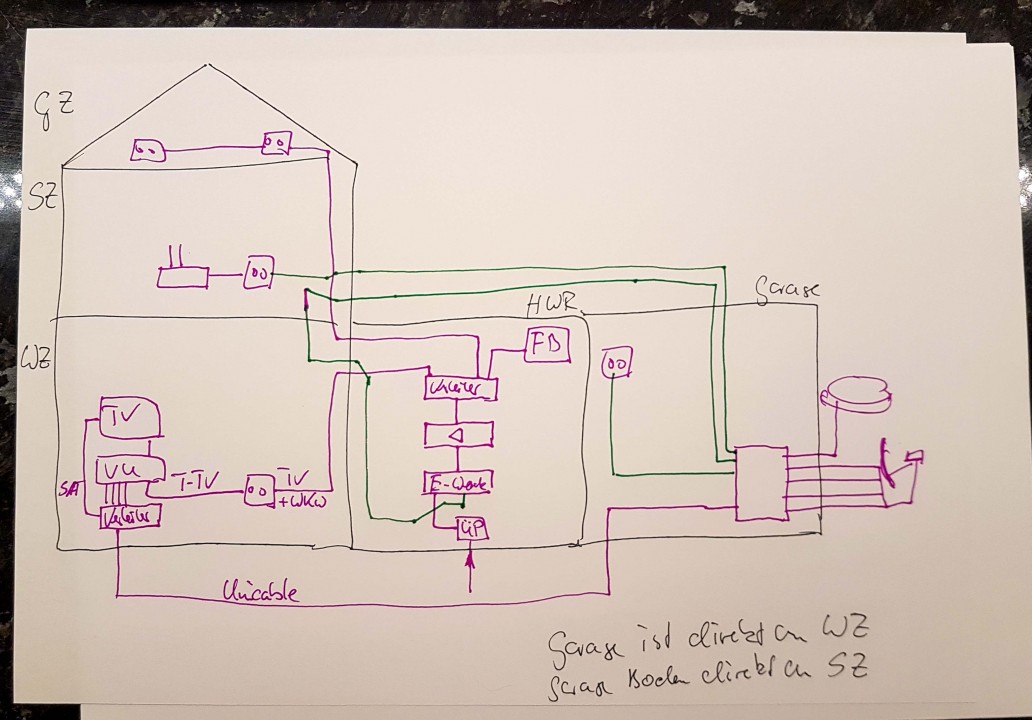 GZ
SZ
HWR
Garage
WZ
FD
Verteiler
TV
VU
T-TV
TV
+WKW
E-Work
SAT
Verteiler
ÜP
Unicable
Garage ist direkt an WZ
Garage Boden direkt an SZ